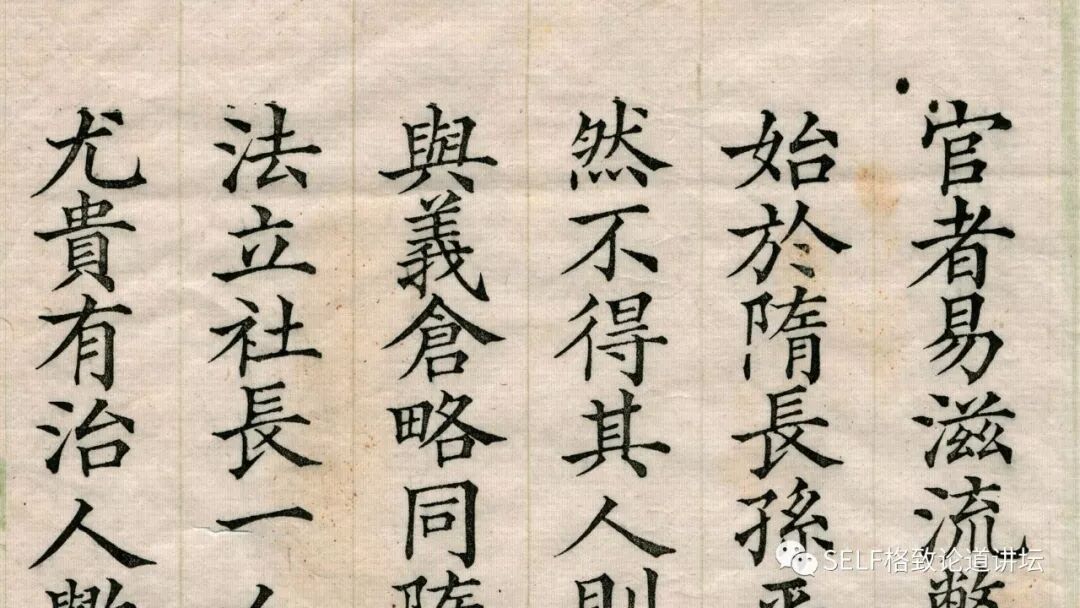 官者易滋流弊
始於隋長孫平
然不得其人則
與義倉略同隋
法立社長一人
尤貴有治人歟
SELF格致论道讲坛